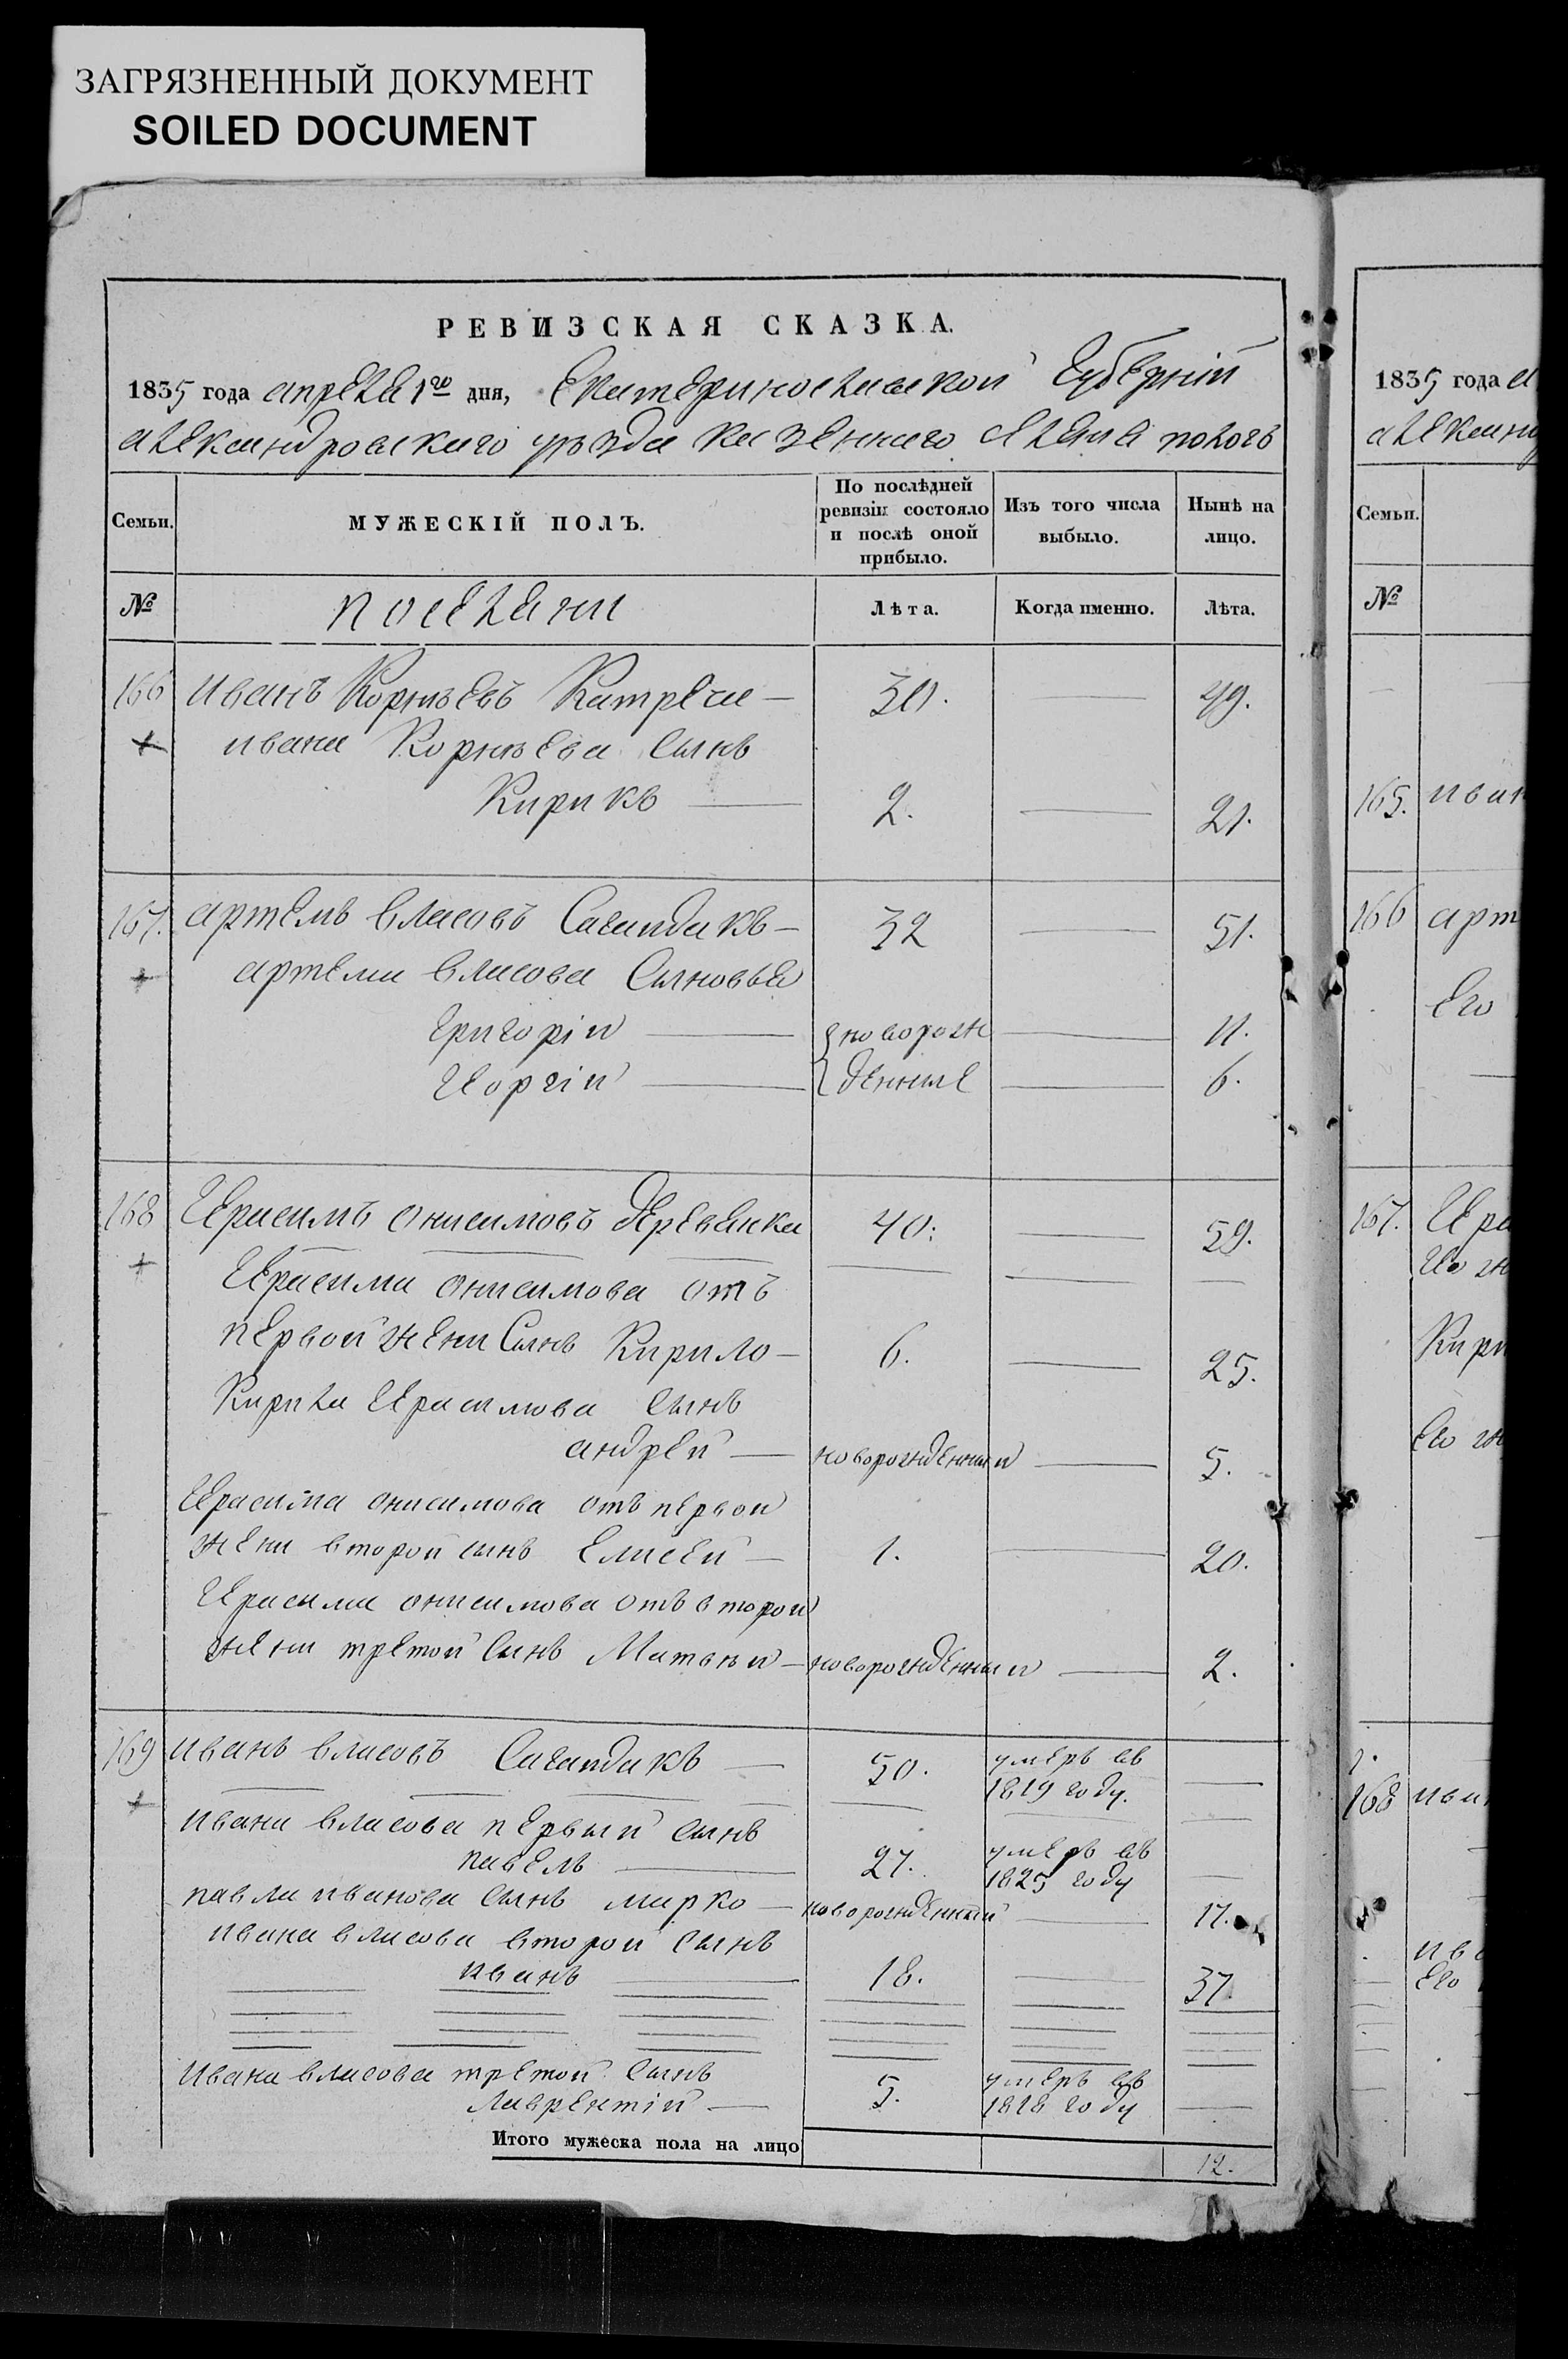 ЗАГРЯЗНЕННЫЙ ДОКУМЕНТ
SOILED DOCUMENT
РЕВИЗСКАЯ СКАЗКА.
1835 года апреля 1го дня, Екатеринославской Губернии
александровского уезда казенного села пологъ
Семьи. МУЖЕСКІЙ ПОЛЪ. По послѣдней ревизіи состояло и послѣ оной прибыло. Изъ того числа выбыло. Нынѣ на лицо.
№ поселяни Лѣта. Когда именно. Лѣта.
166 иванъ Корнѣевъ Катреча — 30. — 49.
ивана Корнѣева сынъ
Кирикъ — 2. — 21.
167. артемъ власовъ Сагайдакъ — 32 — 51.
артема власова Сыновья
Григорій — новорож — 11.
Георгій — денные — 6.
168 Герасимъ онисимовъ деревянка 40. — 59.
Герасима онисимова отъ
первой жени Сынъ Кирило — 6. — 25.
Кирила Герасимова сынъ
андрей — новорожденный — 5.
Герасима онисимова отъ первой
жени второй сынъ Елисей — 1. — 20.
Герасима онисимова отъ второй
жени третой сынъ Матвѣй — новорожденный — 2.
169 иванъ власовъ Сагайдакъ — 50. умеръ въ 1819 году. —
ивана власова первый сынъ
павелъ — 27. умеръ въ 1825 году —
павла иванова сынъ марко — новорожденный — 17.
ивана власова второй сынъ
иванъ — 18. — 37.
ивана власова третой сынъ
лаврентій — 5. умеръ въ 1818 году —
Итого мужеска пола на лицо 12.
1835 года а
александ
Семьи.
№
165. иван
166 арт
Его
167. Гера
Его ж
Кири
Его ж
168 иван
ива
Его